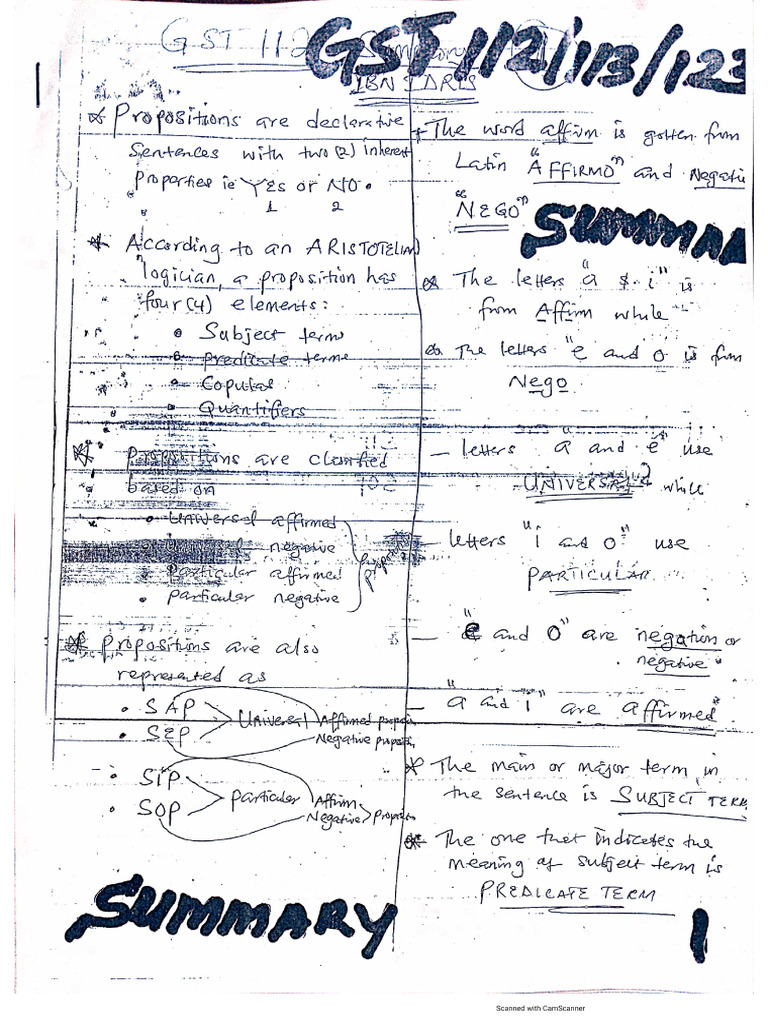 GST 112 Summary
GST 112/113/123
IBN IDRIS
1
* Propositions are declarative
sentences with two (2) inherent
properties ie YES or NO.
1 2
* According to an ARISTOTELIAN
logician, a proposition has
four (4) elements:
• Subject terms
• predicate terms
• Copulas
• Quantifiers
* Propositions are classified
based on
• Universal affirmed
negative
• Particular affirmed
• particular negative
* propositions are also
represented as
• SAP
• SEP
Universal
Affirmed
Negative
• SIP
• SOP
particular
Affirm
Negative
SUMMARY
* The word affirm is gotten from
Latin "AFFIRMO" and Negati
"NEGO"
SUMMAR
* The letters "a & i" is
from Affirm while
* The letters "e and o is from
Nego
— letters "a and e" use
UNIVERSAL while
— letters "i and o" use
PARTICULAR
— "e and o" are negation or
negative
— "a and i" are affirmed
* The main or major term in
the sentence is SUBJECT TERM
* The one that indicates the
meaning of subject term is
PREDICATE TERM
1
Scanned with CamScanner